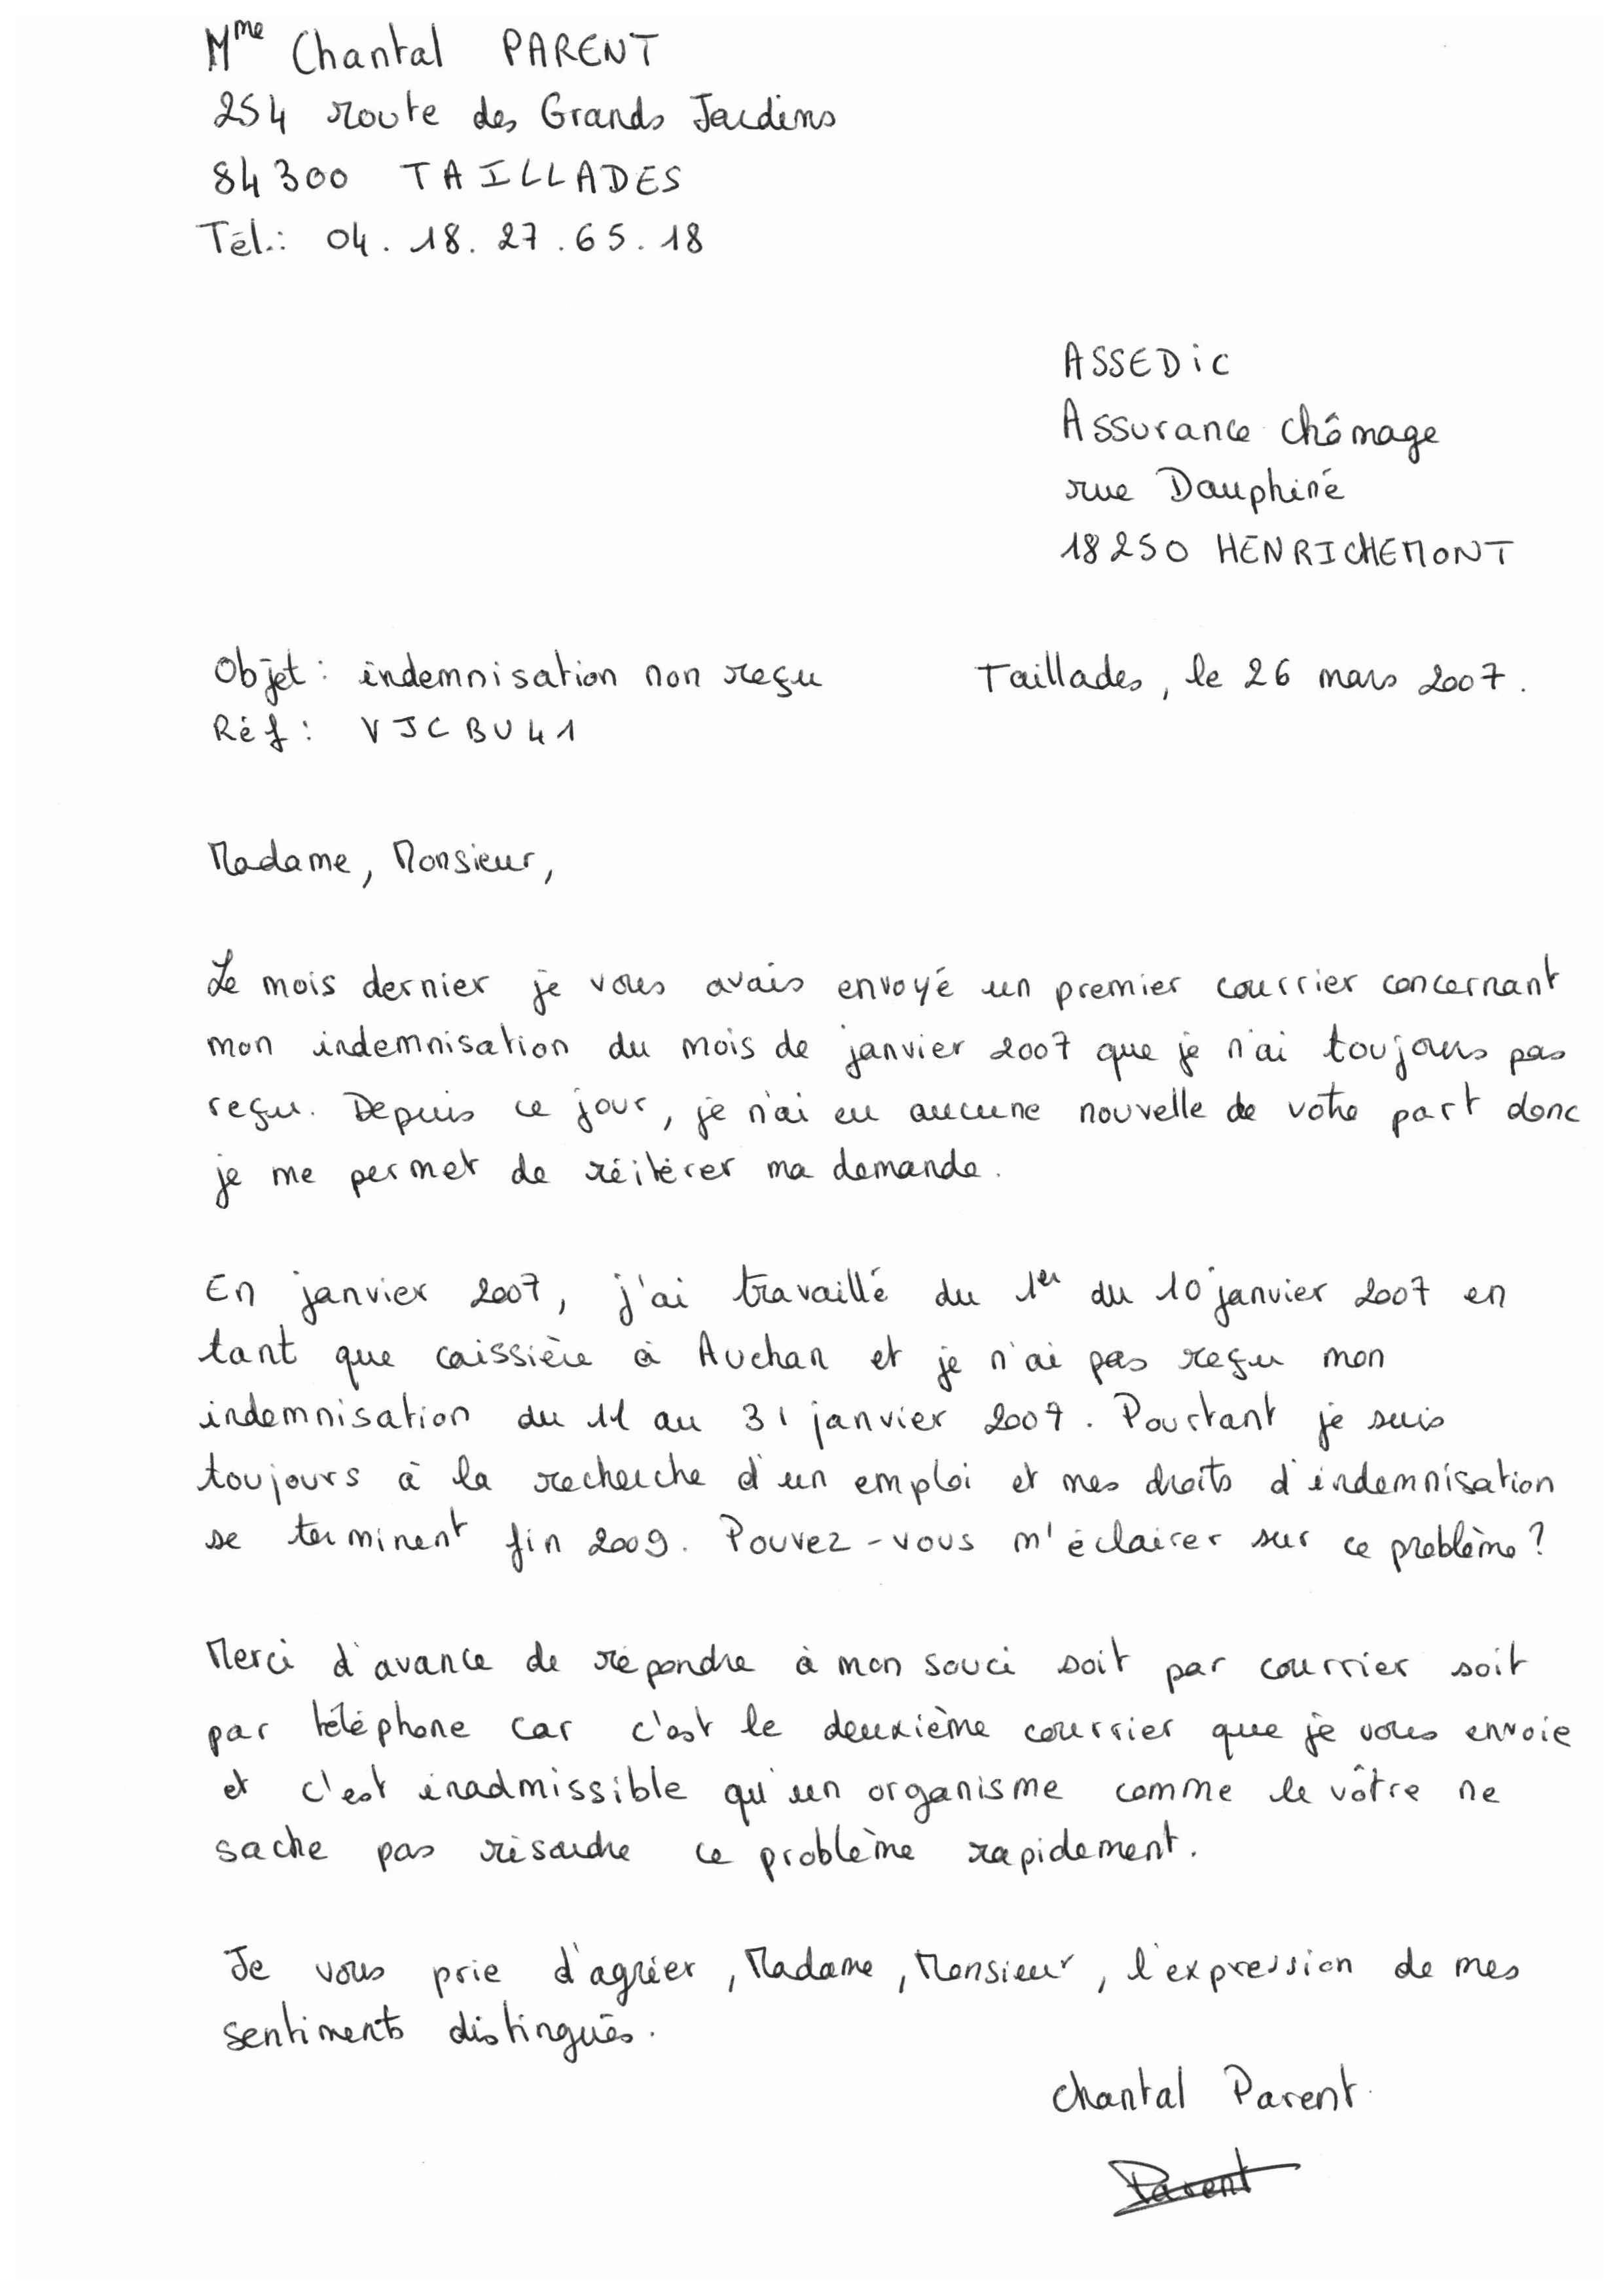 Mme Chantal PARENT
254 route des Grands Jardins
84300 TAILLADES
Tél.: 04.18.27.65.18
ASSEDiC
Assurance chômage
rue Dauphiné
18250 HENRICHEMONT
Objet : indemnisation non reçu
Taillades, le 26 mars 2007.
Réf : VJCBU41
Madame, Monsieur,
Le mois dernier je vous avais envoyé un premier courrier concernant
mon indemnisation du mois de janvier 2007 que je n'ai toujours pas
reçu. Depuis ce jour, je n'ai eu aucune nouvelle de votre part donc
je me permet de réitérer ma demande.
En janvier 2007, j'ai travaillé du 1er du 10 janvier 2007 en
tant que caissière à Auchan et je n'ai pas reçu mon
indemnisation du 11 au 31 janvier 2007. Pourtant je suis
toujours à la recherche d'un emploi et mes droits d'indemnisation
se terminent fin 2009. Pouvez-vous m'éclairer sur ce problème ?
Merci d'avance de répondre à mon souci soit par courrier soit
par téléphone car c'est le deuxième courrier que je vous envoie
et c'est inadmissible qu'un organisme comme le vôtre ne
sache pas résoudre ce problème rapidement.
Je vous prie d'agréer, Madame, Monsieur, l'expression de mes
sentiments distingués.
Chantal Parent
Parent